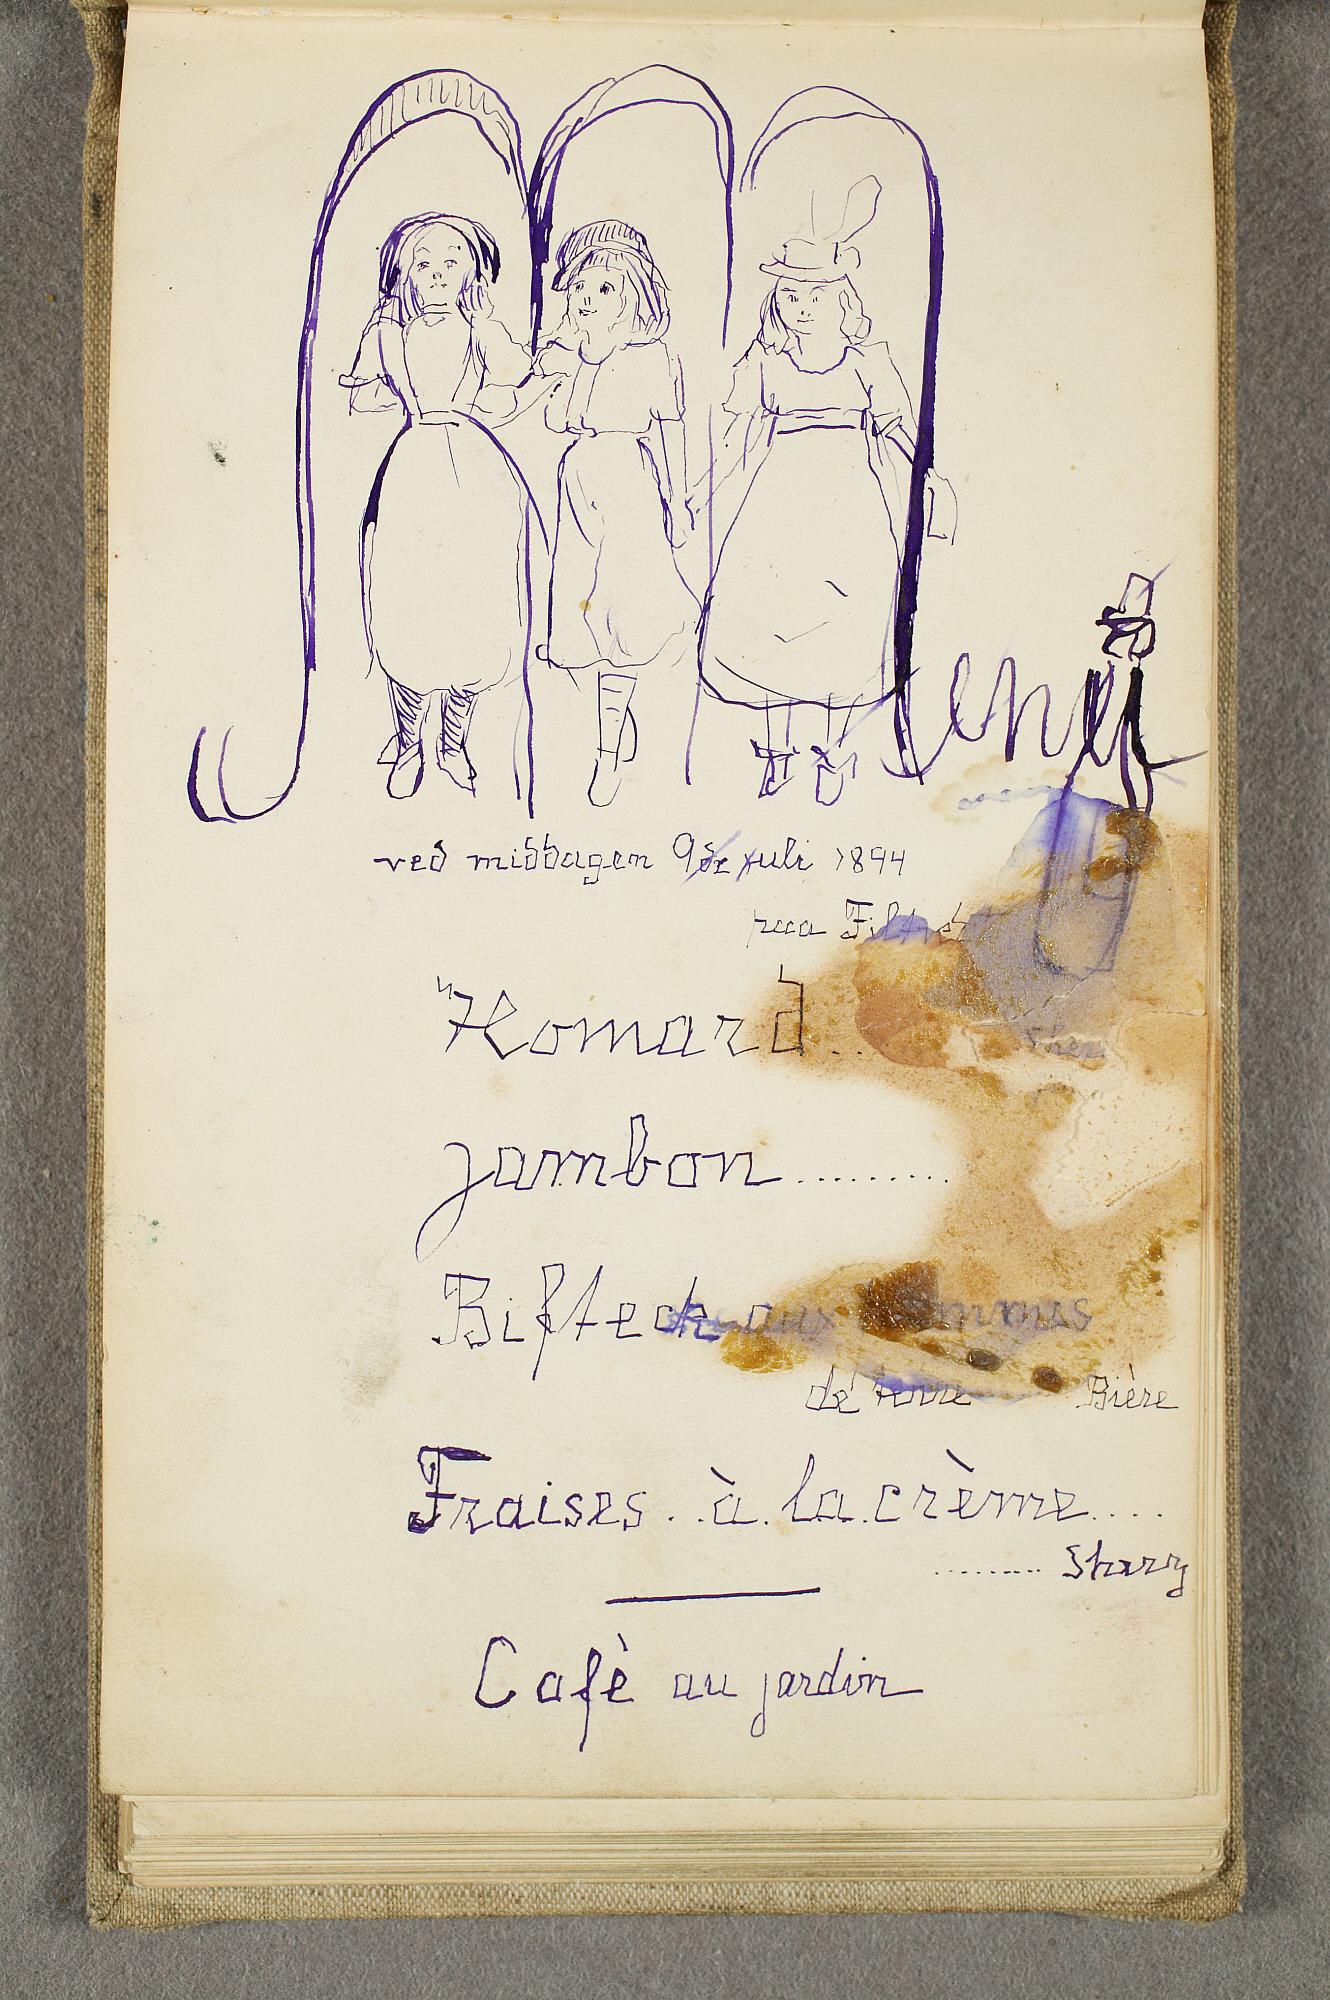 Menu
ved middagen 9de Juli 1894
paa
"Homard..
jambon.........
Bifteck aux pommes
de terre Bière
Fraises..à.la.crème....
......... Sherry
Cafè au jardin